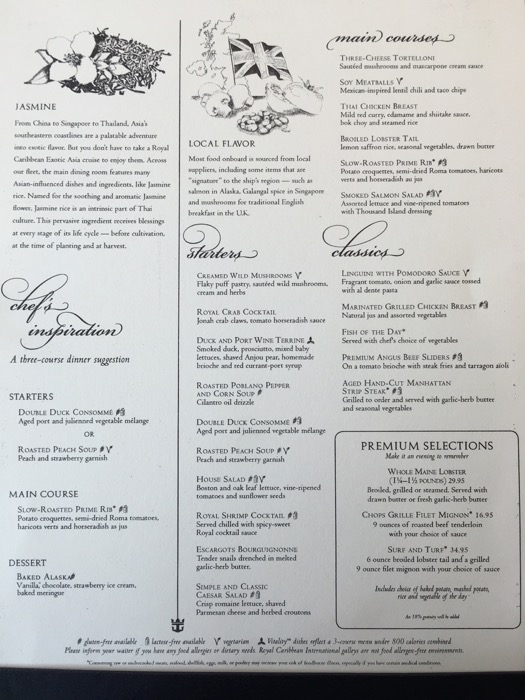 JASMINE
From China to Singapore to Thailand, Asia's
southeastern coastlines are a palatable adventure
into exotic flavor. But you don't have to take a Royal
Caribbean Exotic Asia cruise to enjoy them. Across
our fleet, the main dining room features many
Asian-influenced dishes and ingredients, like Jasmine
rice. Named for the soothing and aromatic Jasmine
flower, Jasmine rice is an intrinsic part of Thai
culture. This pervasive ingredient receives blessings
at every stage of its life cycle — before cultivation,
at the time of planting and at harvest.
chef's
inspiration
A three-course dinner suggestion
STARTERS
DOUBLE DUCK CONSOMMÉ
Aged port and julienned vegetable mélange
OR
ROASTED PEACH SOUP
Peach and strawberry garnish
MAIN COURSE
SLOW-ROASTED PRIME RIB*
Potato croquettes, semi-dried Roma tomatoes,
haricots verts and horseradish au jus
DESSERT
BAKED ALASKA
Vanilla, chocolate, strawberry ice cream,
baked meringue
LOCAL FLAVOR
Most food onboard is sourced from local
suppliers, including some items that are
"signature" to the ship's region — such as
salmon in Alaska, Galangal spice in Singapore
and mushrooms for traditional English
breakfast in the U.K.
starters
CREAMED WILD MUSHROOMS
Flaky puff pastry, sautéed wild mushrooms,
cream and herbs
ROYAL CRAB COCKTAIL
Jonah crab claws, tomato horseradish sauce
DUCK AND PORT WINE TERRINE
Smoked duck, prosciutto, mixed baby
lettuces, shaved Anjou pear, homemade
brioche and red currant-port syrup
ROASTED POBLANO PEPPER
AND CORN SOUP
Cilantro oil drizzle
DOUBLE DUCK CONSOMMÉ
Aged port and julienned vegetable mélange
ROASTED PEACH SOUP
Peach and strawberry garnish
HOUSE SALAD
Boston and oak leaf lettuce, vine-ripened
tomatoes and sunflower seeds
ROYAL SHRIMP COCKTAIL
Served chilled with spicy-sweet
Royal cocktail sauce
ESCARGOTS BOURGUIGNONNE
Tender snails drenched in melted
garlic-herb butter
SIMPLE AND CLASSIC
CAESAR SALAD
Crisp romaine lettuce, shaved
Parmesan cheese and herbed croutons
main courses
THREE-CHEESE TORTELLONI
Sautéed mushrooms and mascarpone cream sauce
SOY MEATBALLS
Mexican-inspired lentil chili and taco chips
THAI CHICKEN BREAST
Mild red curry, edamame and shiitake sauce,
bok choy and steamed rice
BROILED LOBSTER TAIL
lemon saffron rice, seasonal vegetables, drawn butter
SLOW-ROASTED PRIME RIB*
Potato croquettes, semi-dried Roma tomatoes, haricots
verts and horseradish au jus
SMOKED SALMON SALAD
Assorted lettuce and vine-ripened tomatoes
with Thousand Island dressing
classics
LINGUINI WITH POMODORO SAUCE
Fragrant tomato, onion and garlic sauce tossed
with al dente pasta
MARINATED GRILLED CHICKEN BREAST
Natural jus and assorted vegetables
FISH OF THE DAY*
Served with chef's choice of vegetables
PREMIUM ANGUS BEEF SLIDERS
On a tomato brioche with steak fries and tarragon aioli
AGED HAND-CUT MANHATTAN
STRIP STEAK*
Grilled to order and served with garlic-herb butter
and seasonal vegetables
PREMIUM SELECTIONS
Make it an evening to remember
WHOLE MAINE LOBSTER
(1¼–1½ POUNDS) 29.95
Broiled, grilled or steamed. Served with
drawn butter or fresh garlic-herb butter
CHOPS GRILLE FILET MIGNON* 16.95
9 ounces of roasted beef tenderloin
with your choice of sauce
SURF AND TURF* 34.95
6 ounce broiled lobster tail and a grilled
9 ounce filet mignon with your choice of sauce
Includes choice of baked potato, mashed potato,
rice and vegetable of the day
An 18% gratuity will be added
gluten-free available lactose-free available vegetarian Vitality℠ dishes reflect a 3-course menu under 800 calories combined.
Please inform your waiter if you have any food allergies or dietary needs. Royal Caribbean International galleys are not food allergen-free environments.
*Consuming raw or undercooked meats, seafood, shellfish, eggs, milk, or poultry may increase your risk of foodborne illness, especially if you have certain medical conditions.